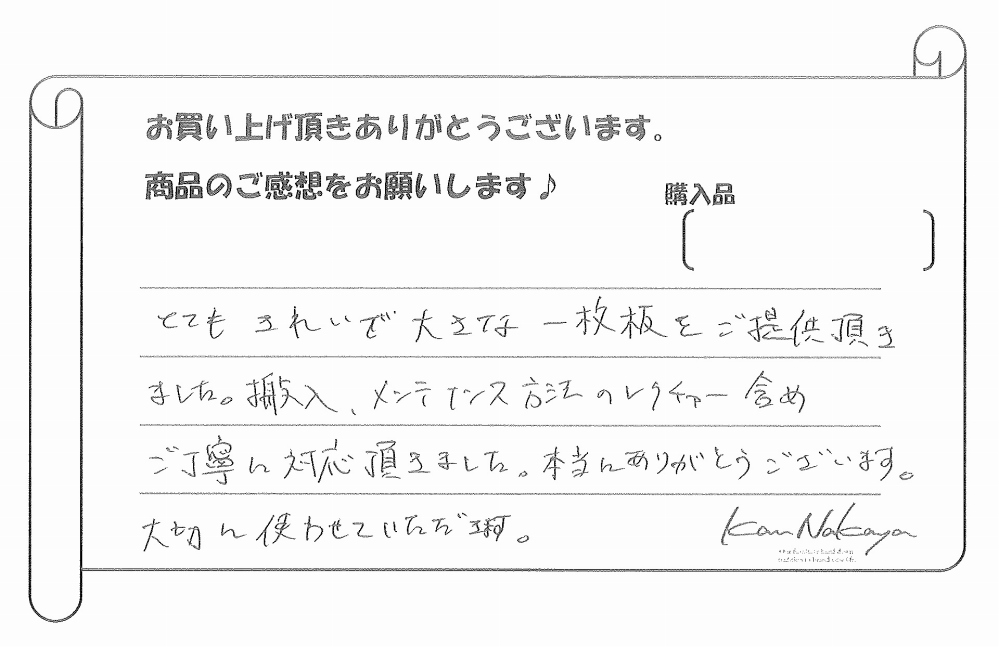 お買い上げ頂きありがとうございます。
商品のご感想をお願いします♪
購入品
とても きれいで 大きな 一枚板を ご提供頂き
ました。搬入、メンテナンス方法のレクチャー含め
ご丁寧に対応頂きました。本当にありがとうございます。
大切に使わせていただきます。
Kan Nakaya